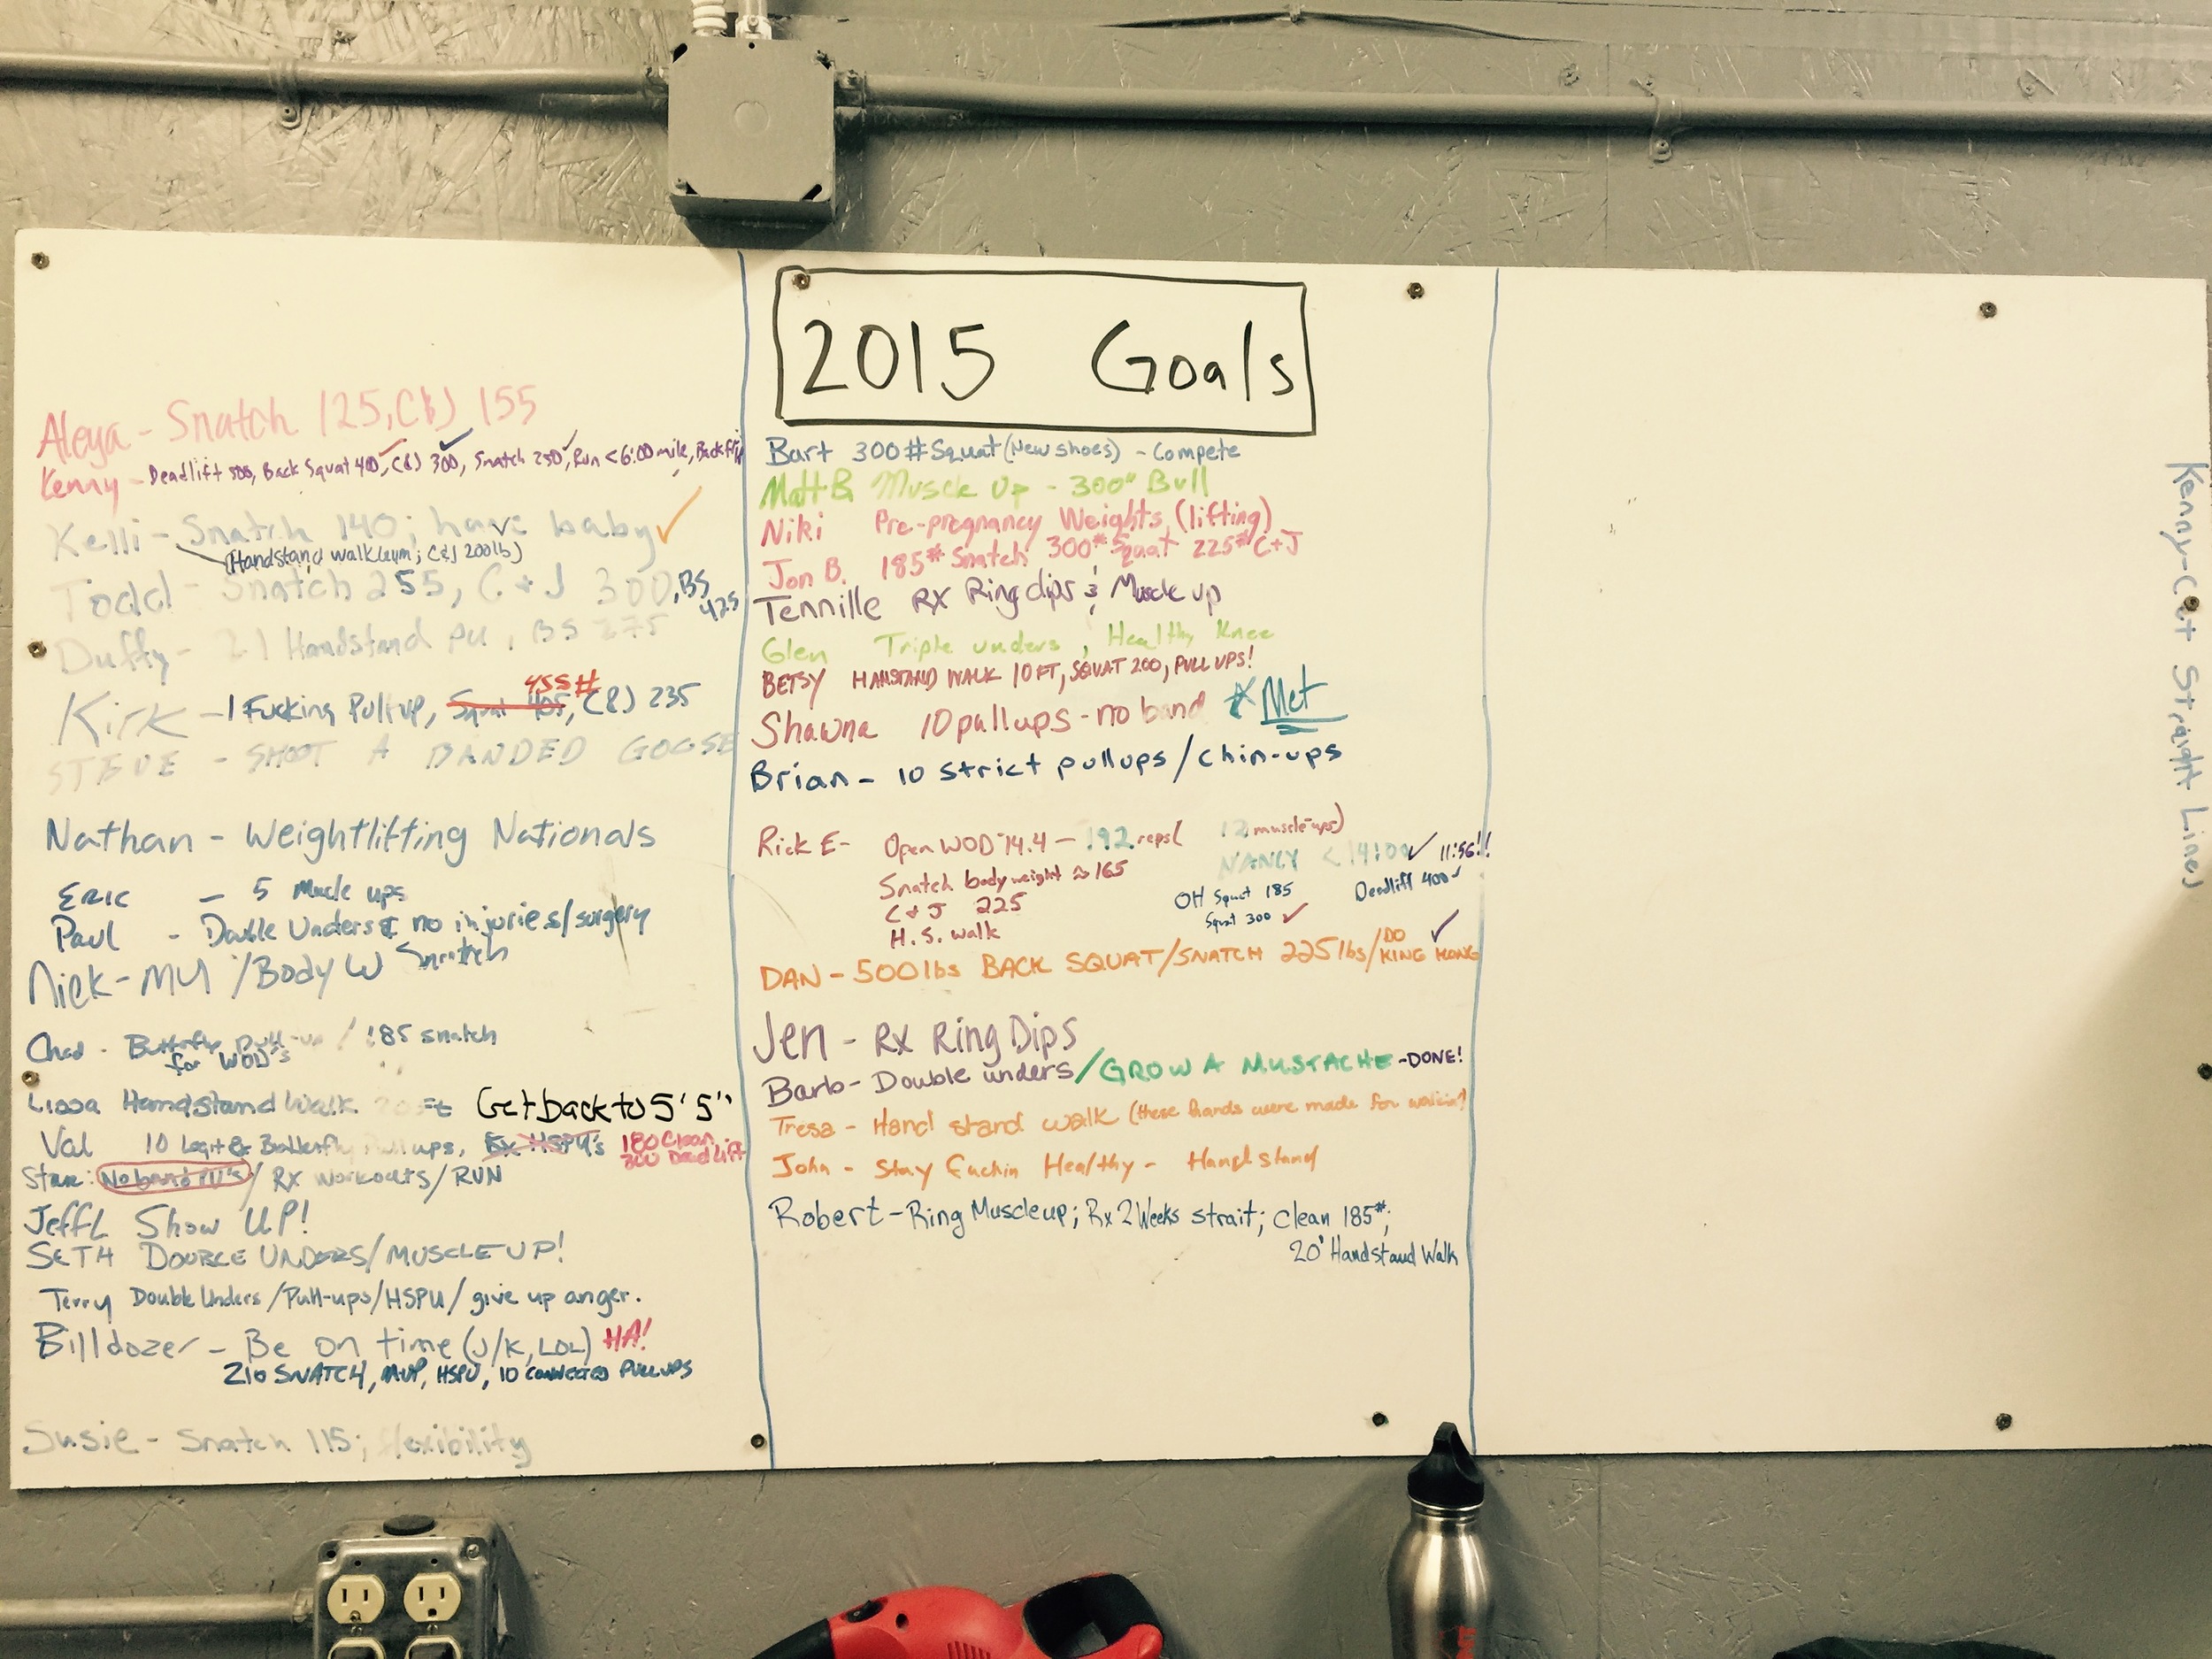 2015 Goals
Aleya - Snatch 125, C&J 155
Kenny - Deadlift 500, Back Squat 410, C&J 300, Snatch 250, Run < 6:00 mile, Backflip
Kelli - Snatch 140; have baby ✓
(Handstand walk; C&J 200lb)
Todd - Snatch 255, C + J 300, BS 425
Duffy - 21 Handstand PU, BS 275
455#
Kirk - 1 Fucking Pullup, Squat 405, C&J 235
STEVE - SHOOT A BANDED GOOSE
Nathan - Weightlifting Nationals
ERIC - 5 Muscle ups
Paul - Double Unders & no injuries/surgery
Nick - MU / Body W Snatch
Chad - Butterfly Pull-up / 185 snatch
for WOD's
Lissa Handstand Walk 20 Ft Get back to 5'5"
Val 10 Legit Butterfly Pullups, Rx HSPU's 180 Clean
300 Deadlift
Stan: No band PU's / RX workouts / RUN
Jeff L Show UP!
SETH DOUBLE UNDERS/MUSCLE UP!
Terry Double Unders / Pull-ups / HSPU / give up anger.
Billdozer - Be on time (J/K, LOL) HA!
210 SNATCH, MUP, HSPU, 10 CONNECTED PULLUPS
Susie - Snatch 115; flexibility
Bart 300# Squat (New shoes) - Compete
Matt B Muscle Up - 300# Bull
Niki Pre-pregnancy Weights (lifting)
Jon B. 185# Snatch 300# Squat 225# C+J
Tennille RX Ring dips & Muscle up
Glen Triple unders, Healthy Knee
BETSY HANSTAND WALK 10FT, SQUAT 200, PULL UPS!
Shawna 10 pullups - no band * Met
Brian - 10 strict pullups / chin-ups
Rick E - Open WOD 14.4 - 192 reps (12 muscle-ups)
NANCY < 14:00 ✓ 11:56!!
Snatch body weight ≈ 165
OH Squat 185 Deadlift 400 ✓
C & J 225
Squat 300 ✓
H.S. walk
DAN - 500lbs BACK SQUAT/SNATCH 225lbs/DO KING KONG ✓
Jen - RX Ring Dips
Barb - Double unders / GROW A MUSTACHE - DONE!
Tresa - Hand stand walk (these hands were made for walkin)
John - Stay Fuckin Healthy - Handstand
Robert - Ring Muscleup; Rx 2 Weeks strait; Clean 185#;
20' Handstand Walk
Kenny - Cut Straight Lines